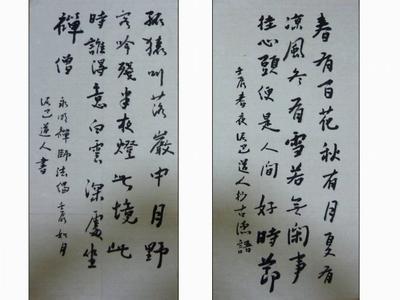 春有百花秋有月夏有
涼風冬有雪若無閑事
挂心頭便是人間好時節
壬辰春夜道人抄古德語
孤猿叫落巖中月野
客吟殘半夜燈此境此
時誰得意白雲深處坐
禪僧
永明禪師法偈壬辰如月
道人書